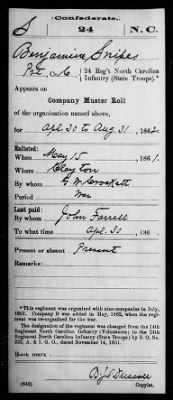 Confederate.
S 24 N.C.
Benjamine Snipes
Pvt, Co. C, 24 Reg't North Carolina
Infantry (State Troops).*
Appears on
Company Muster Roll
of the organization named above,
for Apl 30 to Aug 31, 1862.
Enlisted:
When May 15, 1861.
Where Clayton
By whom
Period War
Last paid:
By whom John Farrell
To what time Apl 30, 186
Present or absent Present
Remarks:
*This regiment was organized with nine companies in July,
1861. Company D was added in May, 1862, when the regi-
ment was re-organized for the war.
The designation of the regiment was changed from the 14th
Regiment North Carolina Infantry (Volunteers) to the 24th
Regiment North Carolina Infantry (State Troops) by S. O. No.
222, A. & I. G. O., dated November 14, 1861.
Book mark:
(642) Copyist.